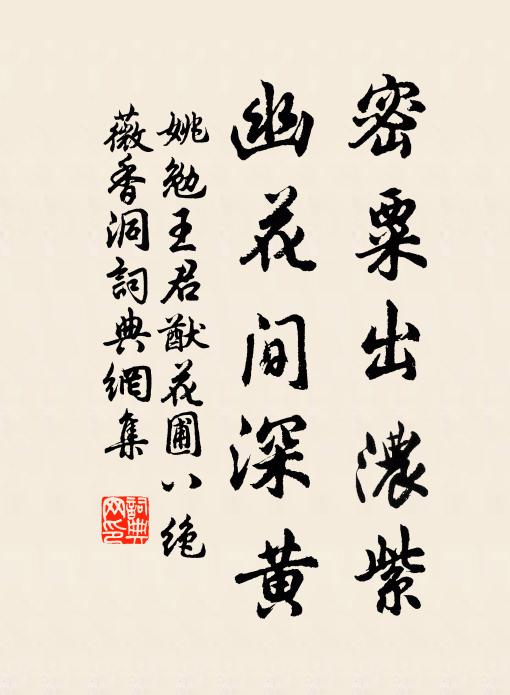 密粟出濃紫
幽花間深黄
姚勉王君猷花圃八絶
薇香洞詞典網集
詞典网印